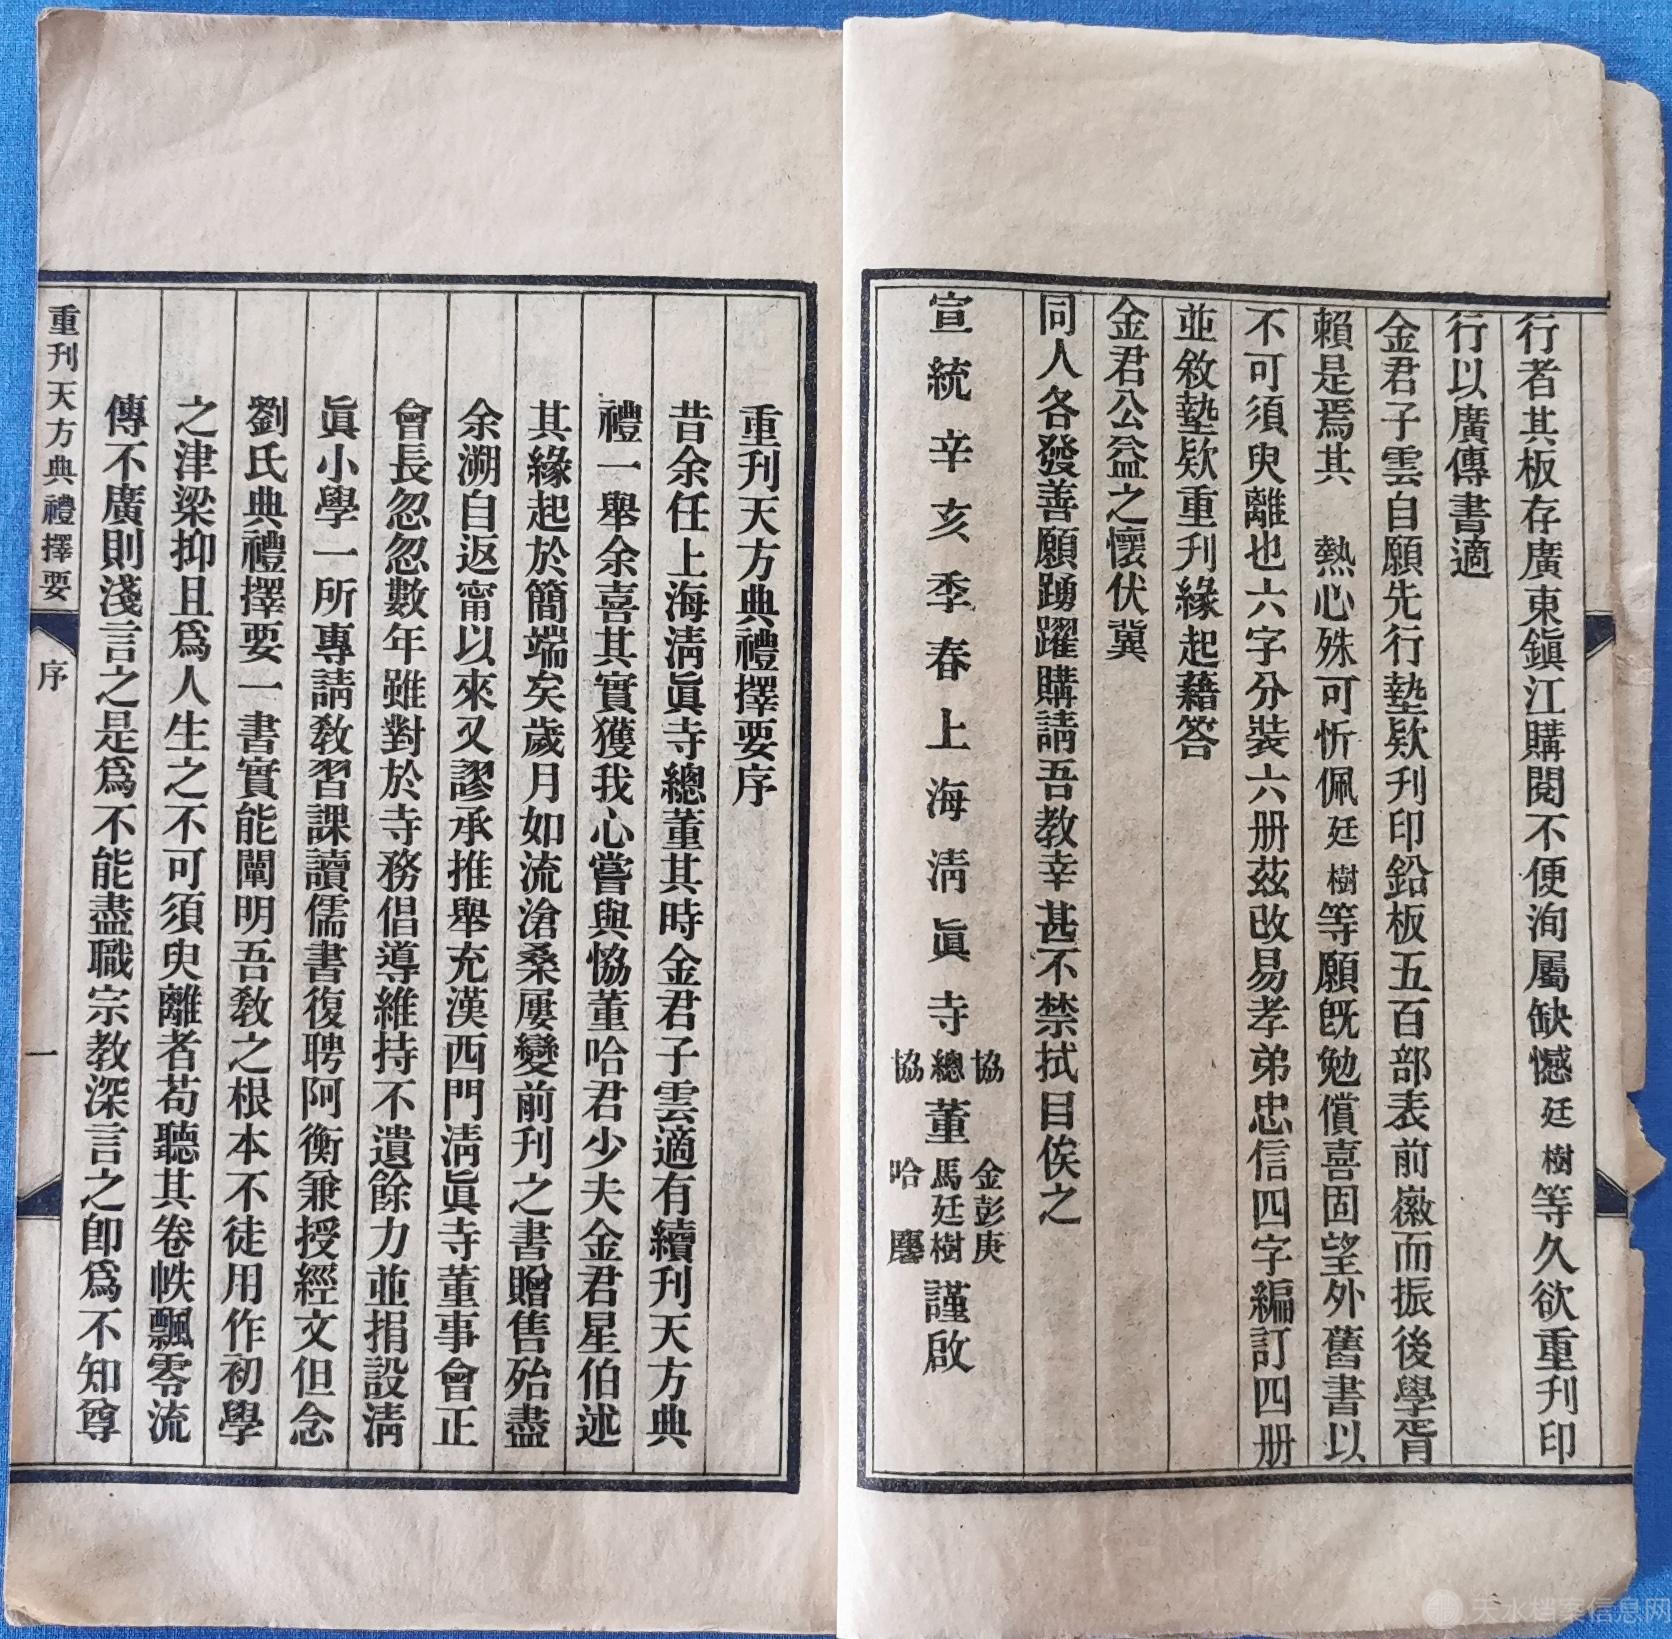 行者其板存廣東鎭江購閱不便洵屬缺憾廷樹等久欲重刋印
行以廣傳書適
金君子雲自願先行墊欵刋印鉛板五百部表前徽而振後學胥
賴是焉其 熱心殊可忻佩廷樹等願旣勉償喜固望外舊書以
不可須臾離也六字分裝六册茲改易孝弟忠信四字編訂四册
並敘墊欵重刋緣起藉答
金君公益之懷伏冀
同人各發善願踴躍購請吾教幸甚不禁拭目俟之
宣統辛亥季春上海淸眞寺
協 金彭庚
總董 馬廷樹 謹啟
協 哈麐
重刋天方典禮擇要序
昔余任上海淸眞寺總董其時金君子雲適有續刋天方典
禮一舉余喜其實獲我心嘗與協董哈君少夫金君星伯述
其緣起於簡端矣歲月如流滄桑屢變前刋之書贈售殆盡
余溯自返甯以來又謬承推舉充漢西門淸眞寺董事會正
會長忽忽數年雖對於寺務倡導維持不遺餘力並捐設淸
眞小學一所專請敎習課讀儒書復聘阿衡兼授經文但念
劉氏典禮擇要一書實能闡明吾敎之根本不徒用作初學
之津梁抑且爲人生之不可須臾離者苟聽其卷帙飄零流
傳不廣則淺言之是爲不能盡職宗教深言之卽爲不知尊
重刋天方典禮擇要
序
一
天水档案信息网